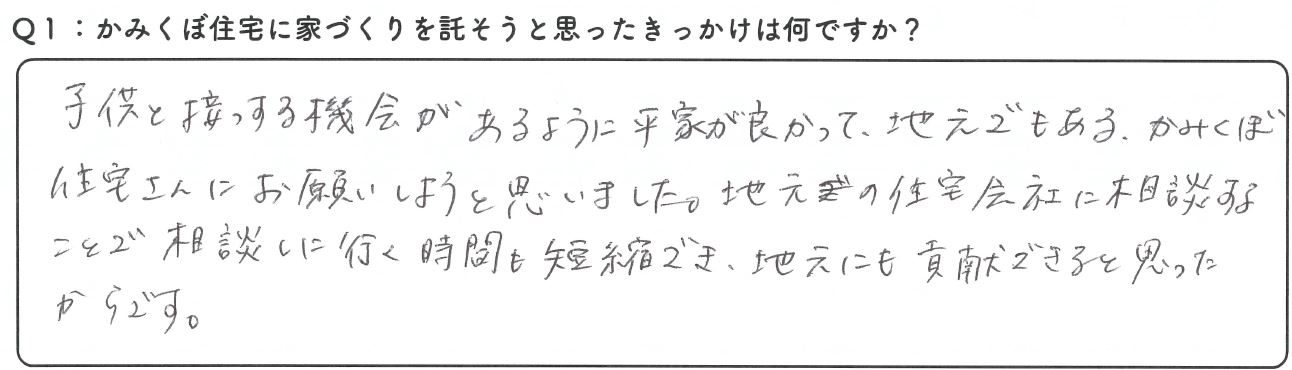 Q1：かみくぼ住宅に家づくりを託そうと思ったきっかけは何ですか？
子供と接っする機会があるように平家が良かって、地元でもある、かみくぼ
住宅さんにお願いしようと思いました。地元の住宅会社に相談する
ことで相談しに行く時間も短縮でき、地元にも貢献できると思った
からです。